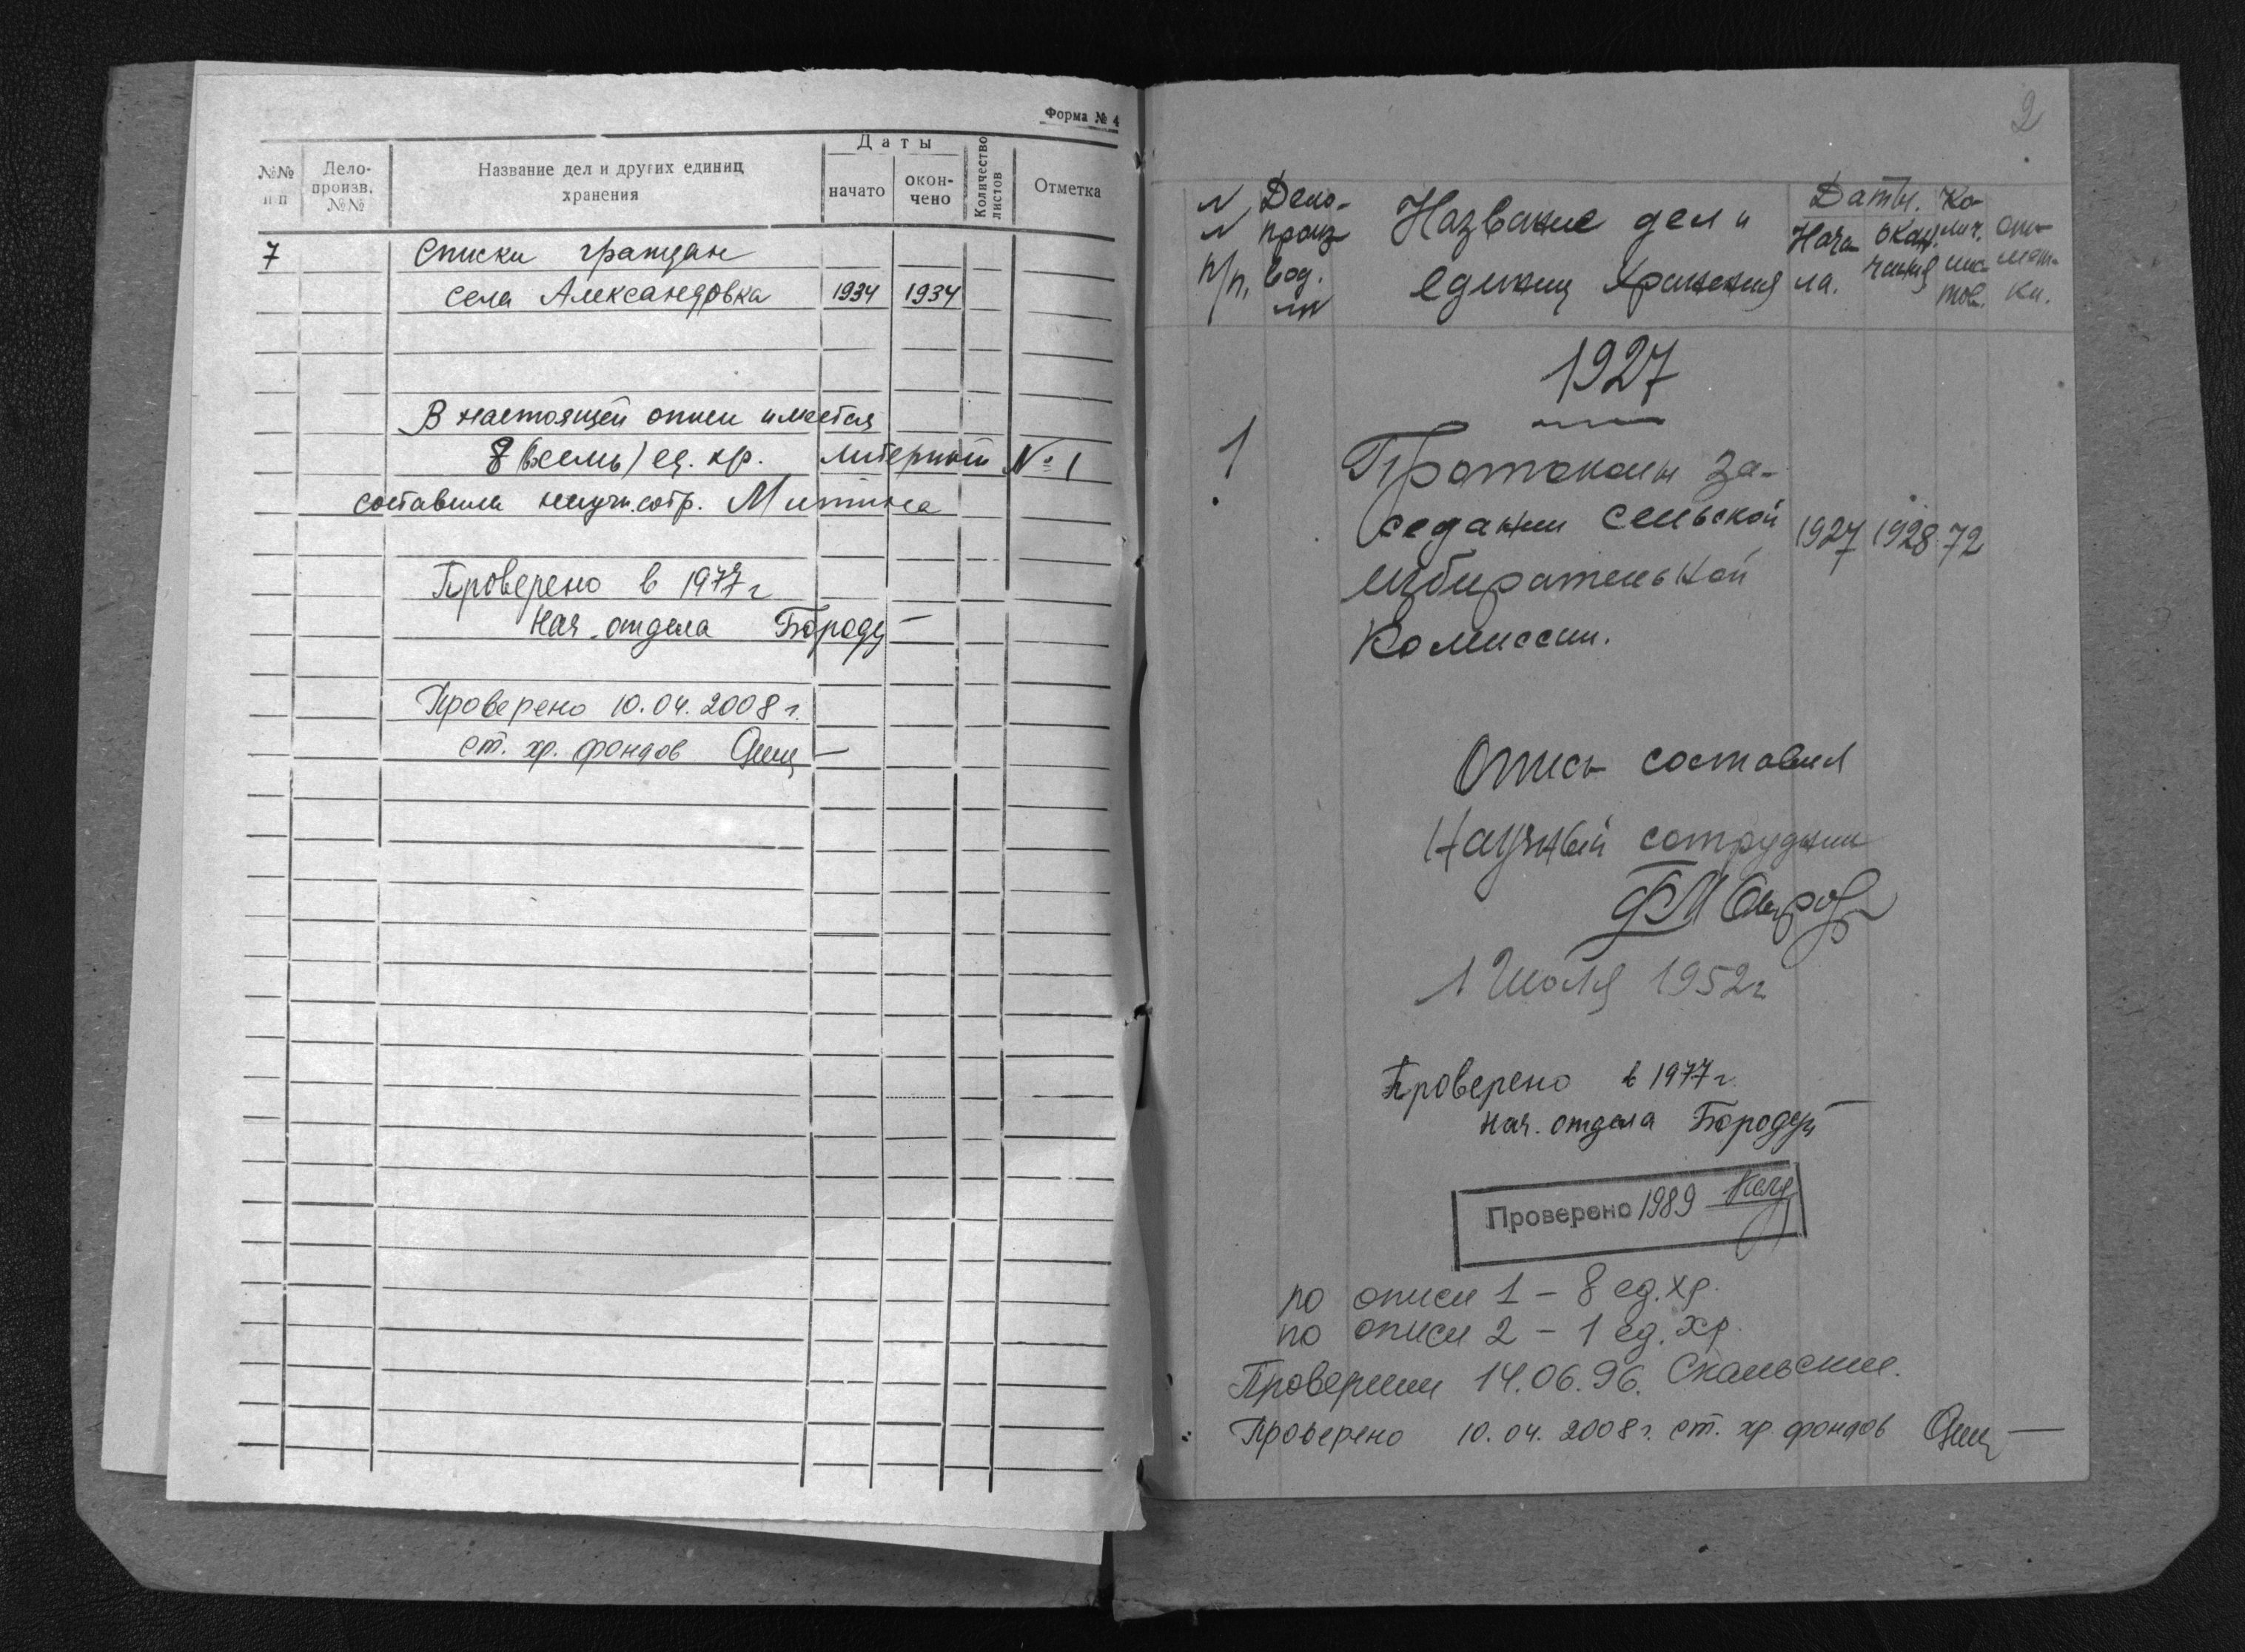 Форма № 4
№№ п п
Дело-
произв.
№№
Название дел и других единиц
хранения
Даты
начато
окон-
чено
Количество
листов
Отметка
7 Списки граждан
села Александровка 1934 1934
В настоящей описи имеется
8 (восемь) ед. хр. литерный № 1
составила научн. сотр. Митина
Проверено в 1977 г
Нач. отдела
Проверено 10.04.2008 г.
ст. хр. фондов
2
N N п/п.
Дело-
произ
вод.
Название дел и
единиц хранения
Даты.
Нача
ла.
Окан
чания
Ко-
лич.
лис-
тов.
От-
мет-
ки.
1927
1
Протоколы за-
седании сельской 1927 1928 72
избирательной
комиссии.
Опись составил
Научный сотрудник
1 Июля 1952 г
Проверено в 1977 г
Нач. отдела
Проверено 1989
по описи 1 – 8 ед. хр.
по описи 2 – 1 ед. хр.
Проверили 14.06.96.
Проверено 10.04.2008 г. ст. хр. фондов